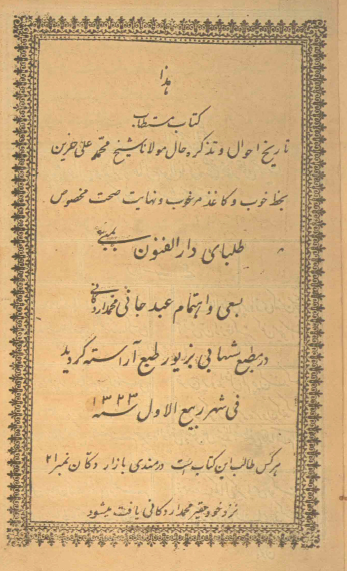 هذا
کتاب مستطاب
تاریخ احوال و تذکره حال مولانا شیخ محمد علی حزین
بخط خوب و کاغذ مرغوب و نهایت صحت مخصوص
طلبای دار الفنون بمبئی
بسعی و اهتمام عبد جانی محمد اردکانی
در مطبع شهابی بزیور طبع آراسته گردید
فی شهر ربیع الاول سنه ۱۳۲۳
هر کس طالب این کتاب است در مندی بازار دکان نمبر ۲۱
نزد خود حقیر محمد اردکانی یافت میشود